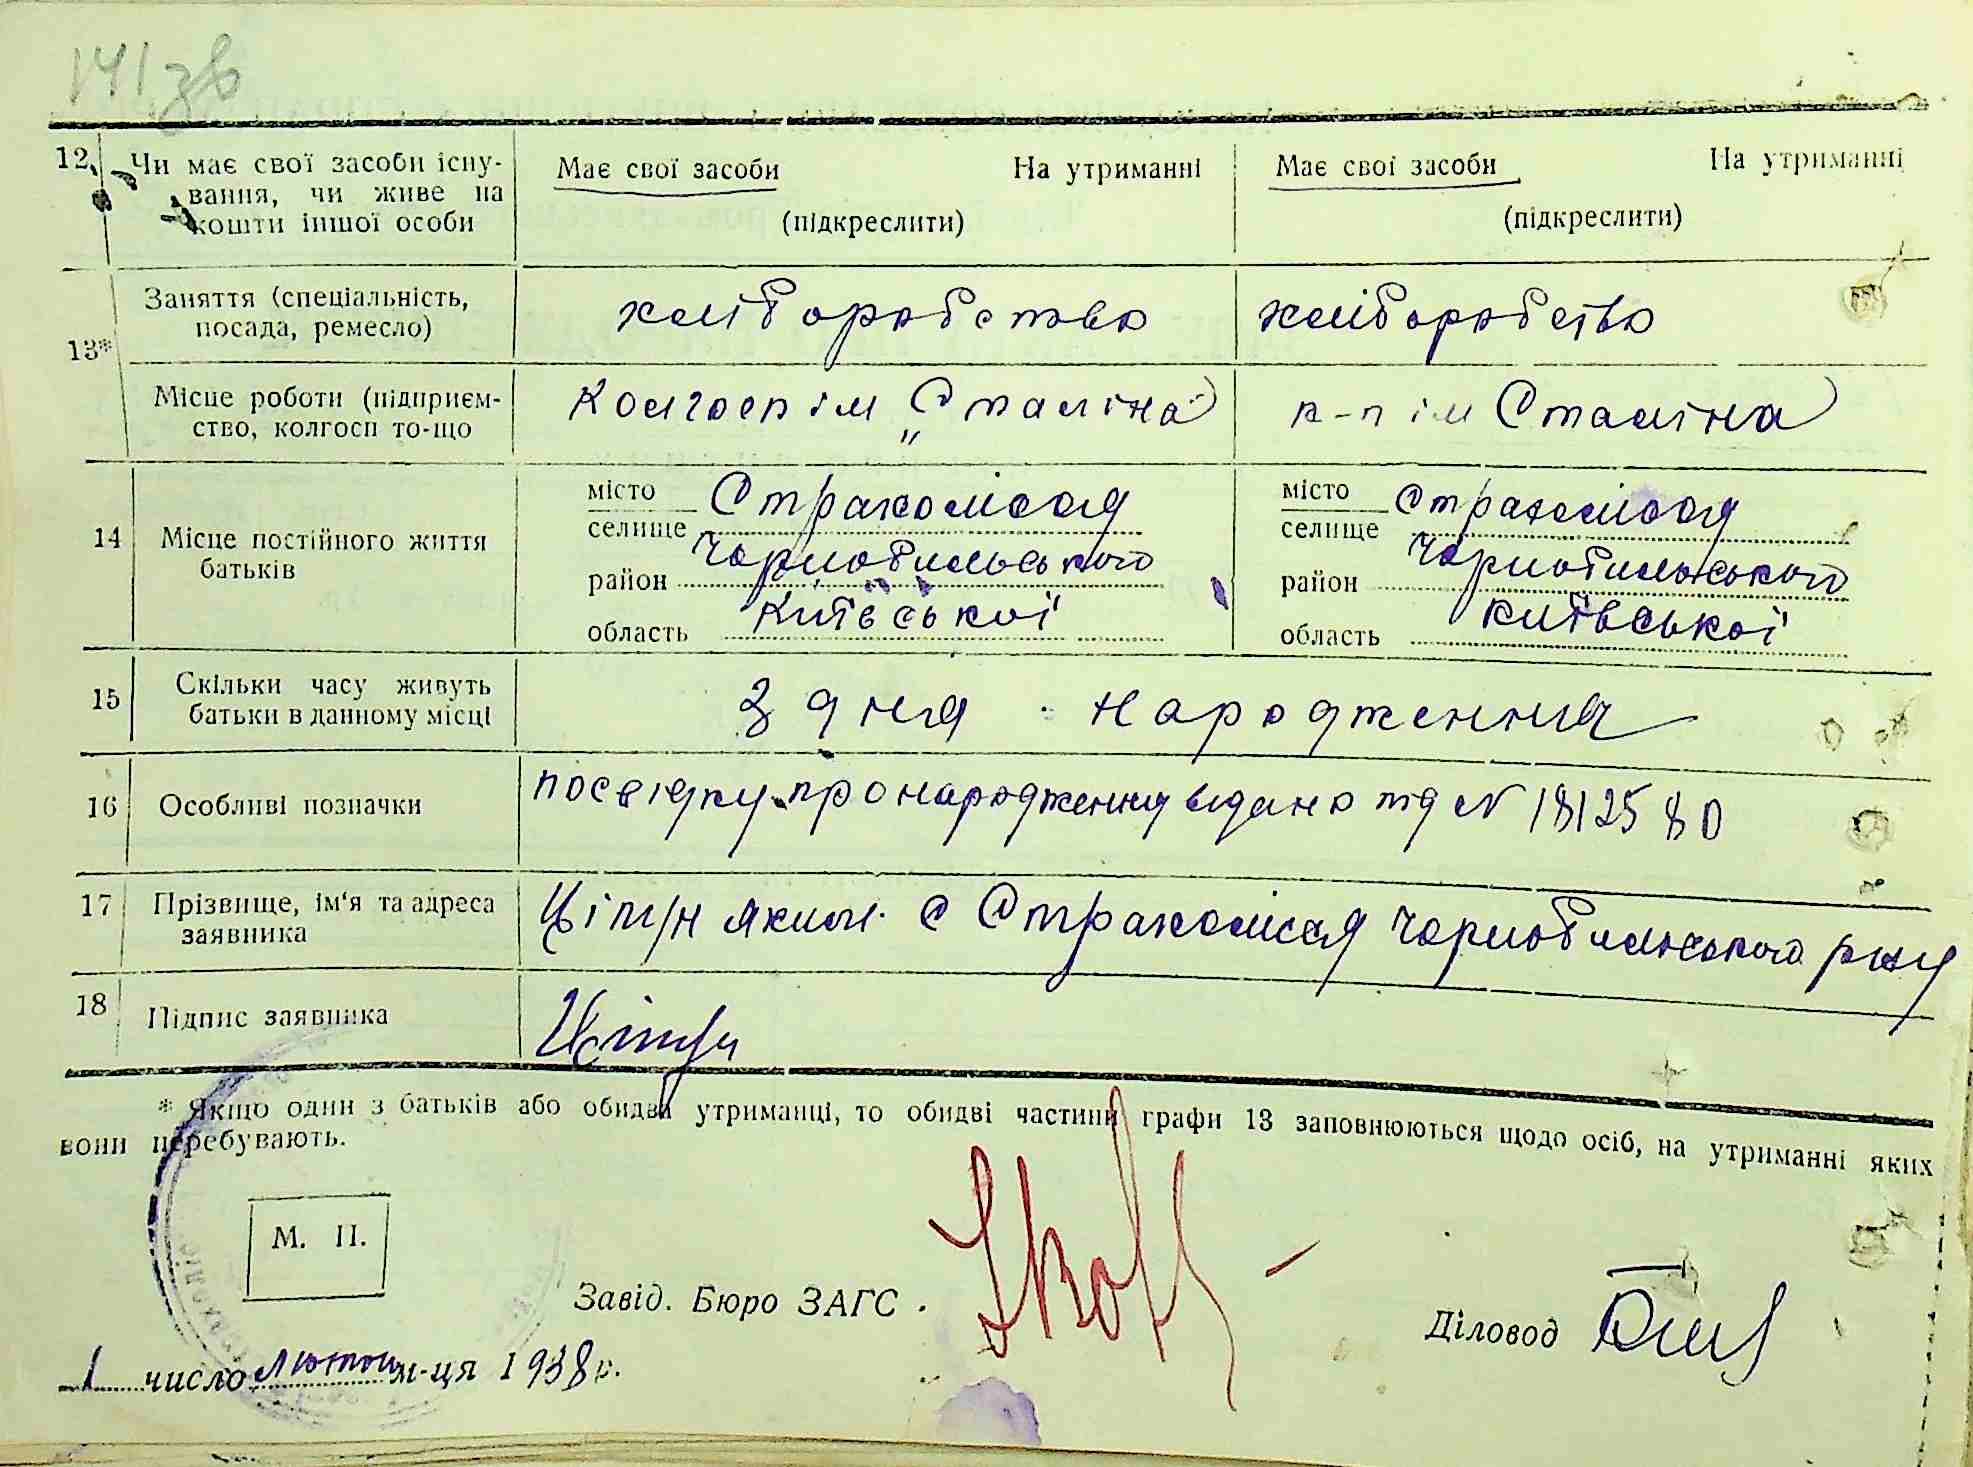 141зв
12. Чи має свої засоби існу-
вання, чи живе на
кошти іншої особи
Має свої засоби На утриманні
(підкреслити)
Має свої засоби На утриманні
(підкреслити)
13* Заняття (спеціальність,
посада, ремесло)
хліборобство
хліборобство
Місце роботи (підприєм-
ство, колгосп то-що
Колгосп ім „Сталіна"
к-п ім Сталіна
14 Місце постійного життя
батьків
місто
селище Страхолісся
район Чорнобильського
область Київської
місто
селище Страхолісся
район Чорнобильського
область Київської
15 Скільки часу живуть
батьки в данному місці
З дня народження
16 Особливі позначки
посвідку про народження видано під № 1812580
17 Прізвище, ім'я та адреса
заявника
Яким с Страхолісся Чорнобильського р-ну
18 Підпис заявника
* Якщо один з батьків або обидва утриманці, то обидві частини графи 13 заповнюються щодо осіб, на утриманні яких
вони перебувають.
М. П.
Завід. Бюро ЗАГС
Діловод
1 число лютого м-ця 1938 р.